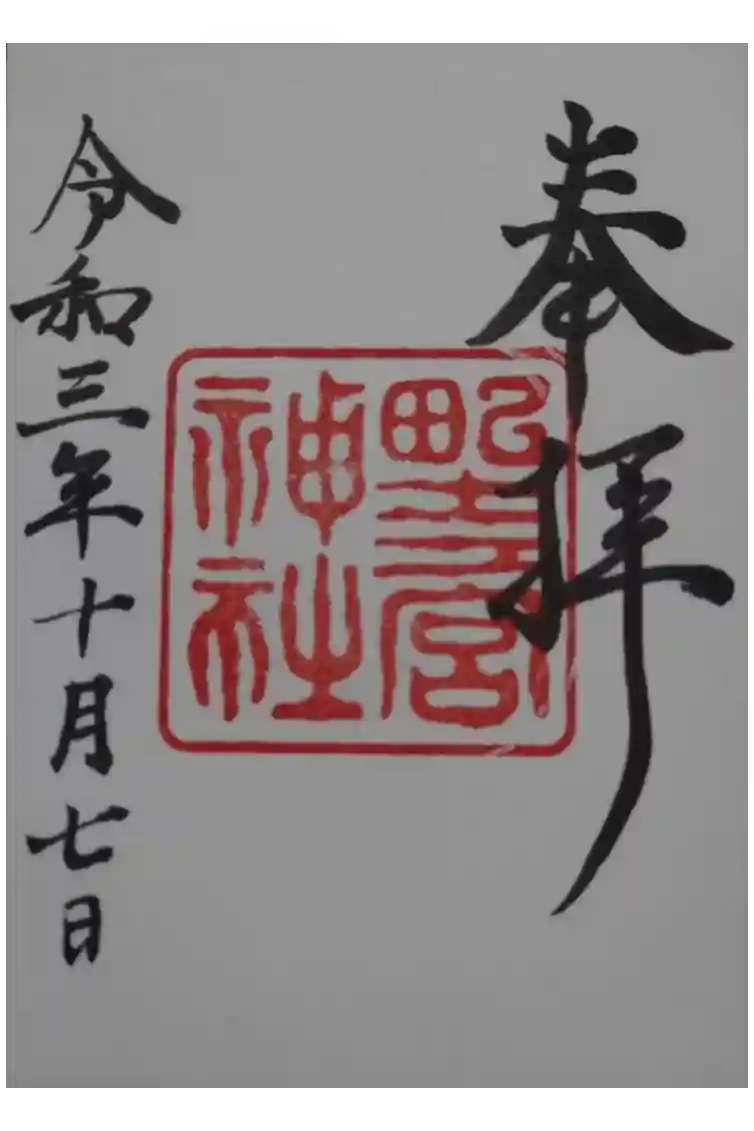 奉拝
野宮
神社
令和三年十月七日